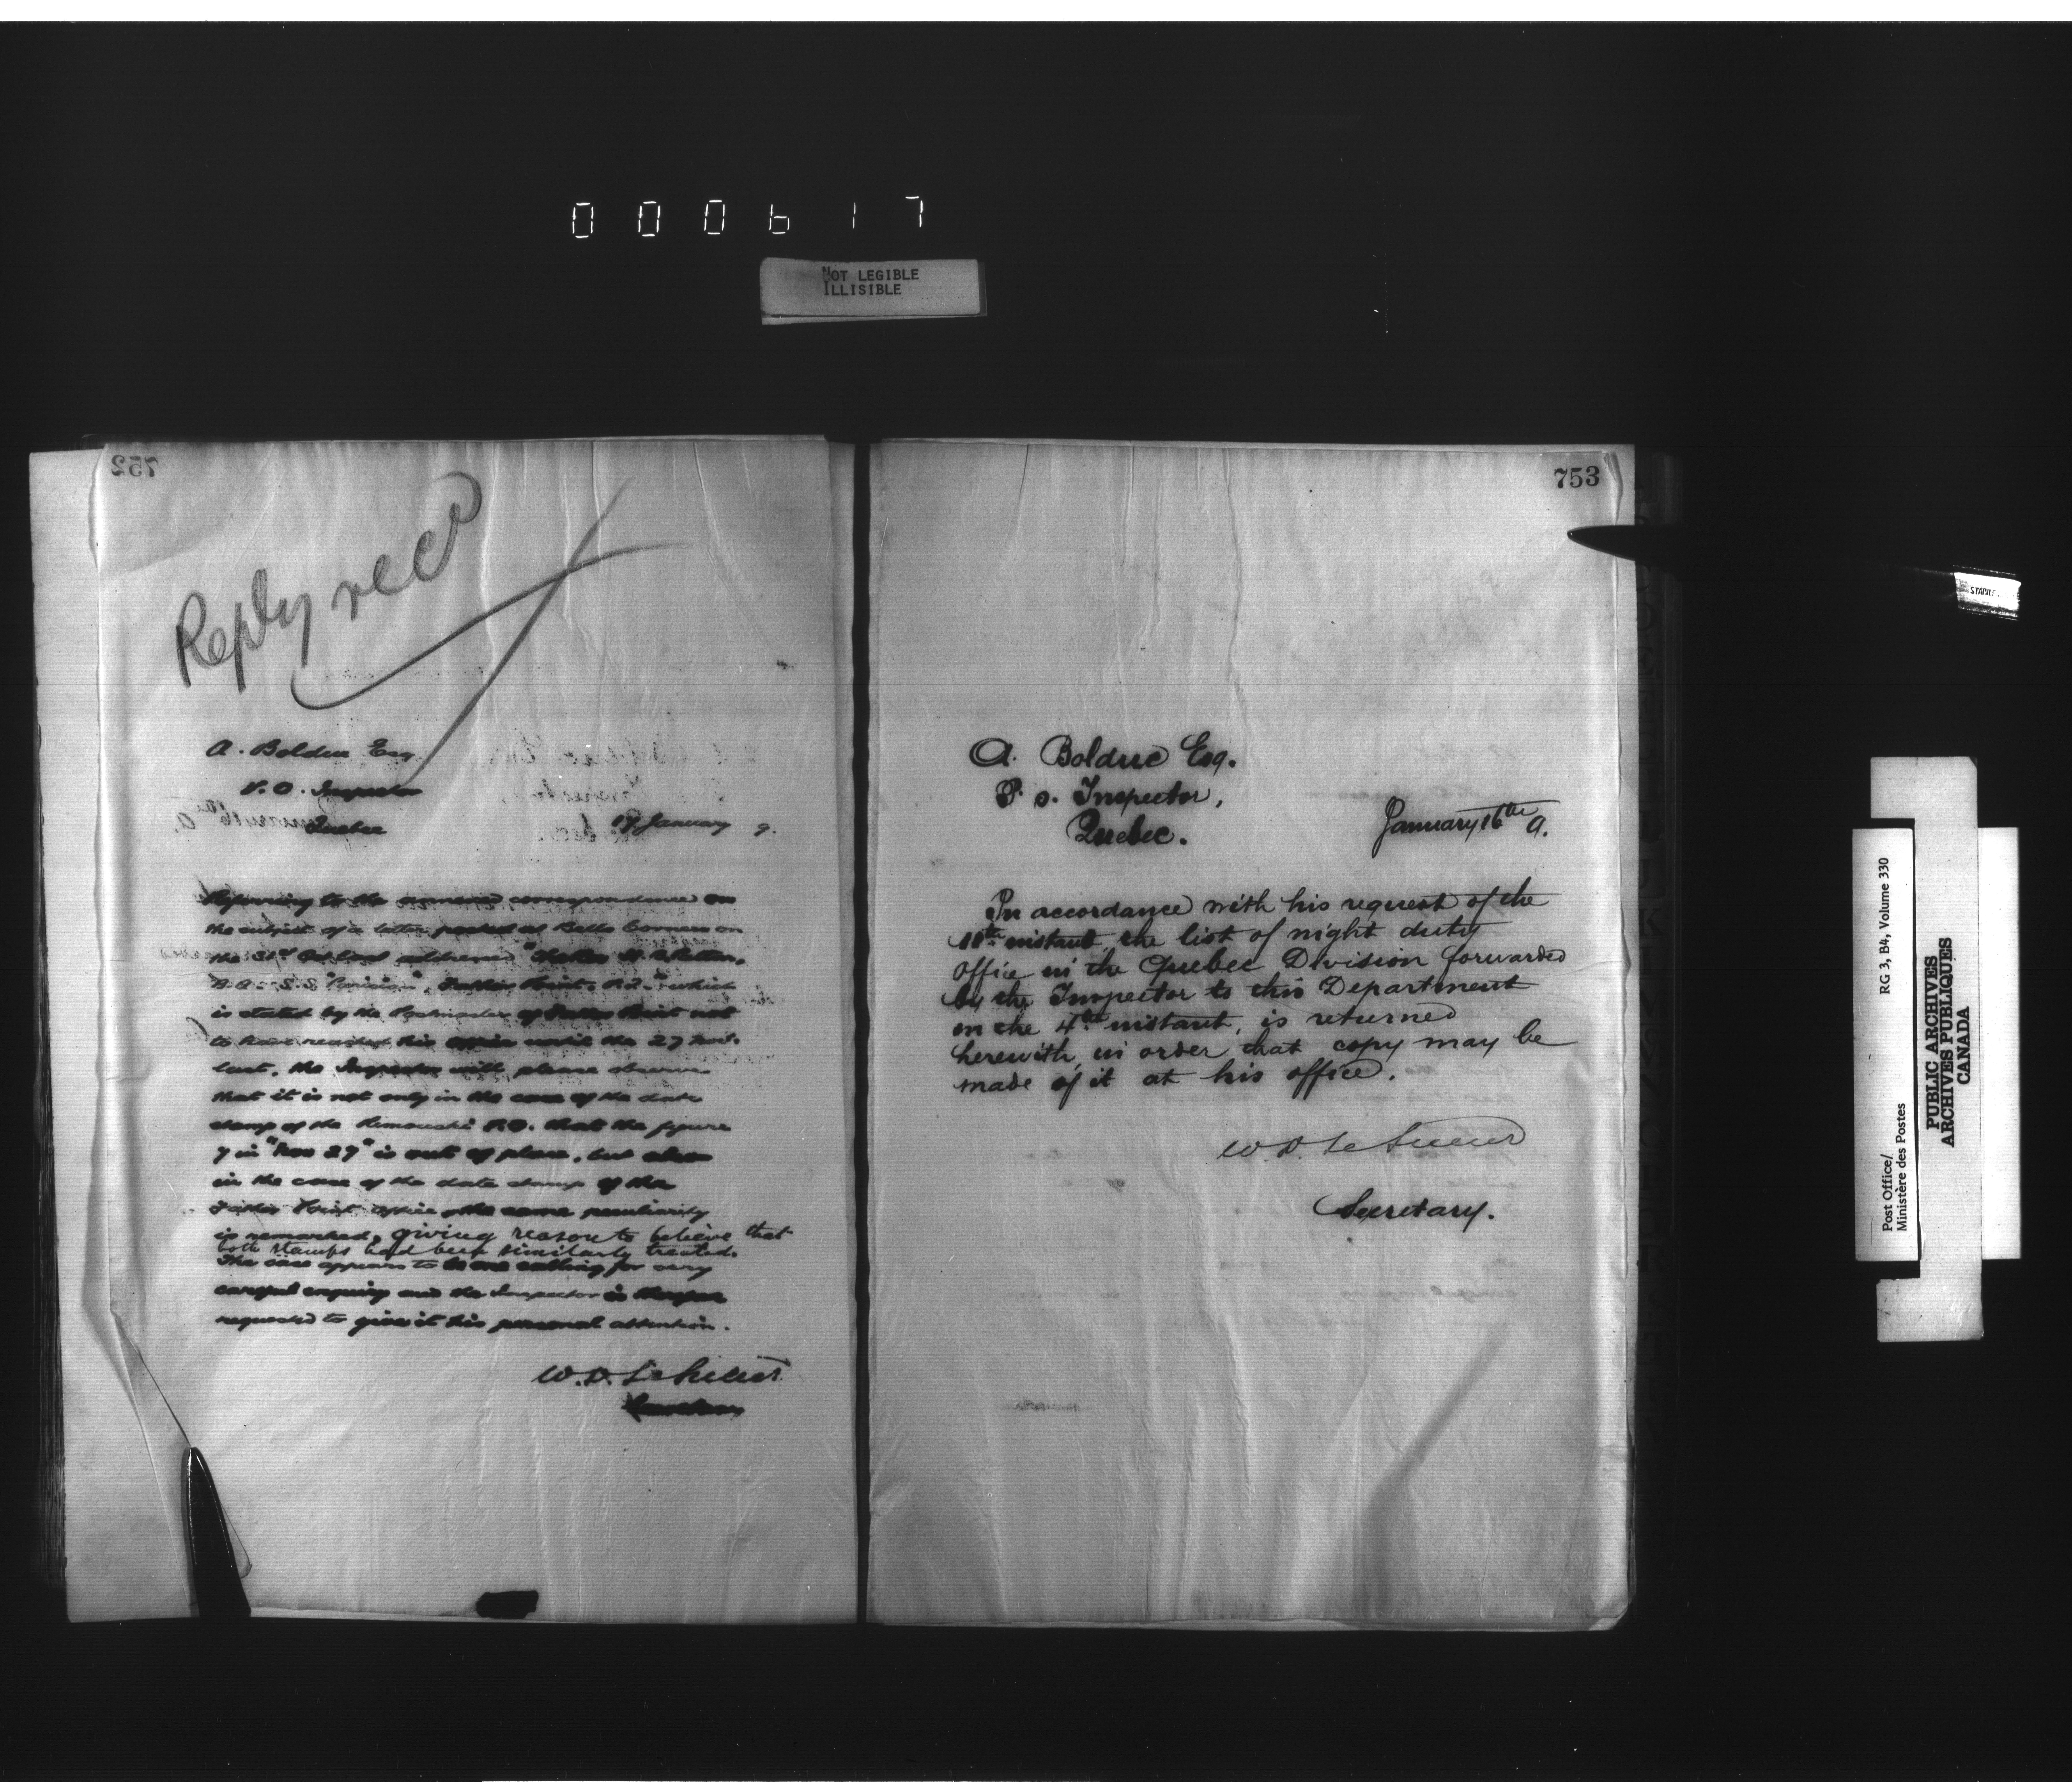 000617
NOT LEGIBLE
ILLISIBLE
752
Reply recd
A. Bolduc Esq
P.O. Inspector
Quebec
17 January 9.
Referring to the annexed correspondence on
the subject of a letter posted at Bells Corners on
the 31st Oct last addressed
S.S. "Parisian", Father Point, P.2." which
is stated by the Postmaster of Father Point not
to have reached his office until the 27 Nov.
last, the Inspector will please observe
that it is not only in the case of the date
stamp of the Rimouski P.O. that the figure
7 in "Nov 27" is out of place, but also
in the case of the date stamp of the
Father Point office the same peculiarity
is remarked, giving reason to believe that
both stamps had been similarly treated.
The case appears to be one calling for very
careful enquiry and the Inspector is therefore
requested to give it his personal attention.
W.D. LeSueur
Secretary
753
A. Bolduc Esq.
P. O. Inspector,
Quebec.
January 16th 9.
In accordance with his request of the
11th instant, the list of night duty
office in the Quebec Division forwarded
by the Inspector to this Department
on the 4th instant, is returned
herewith, in order that copy may be
made of it at his office.
W.D. LeSueur
Secretary.
STAPLE
RG 3, B4, Volume 330
Post Office/
Ministère des Postes
PUBLIC ARCHIVES
ARCHIVES PUBLIQUES
CANADA